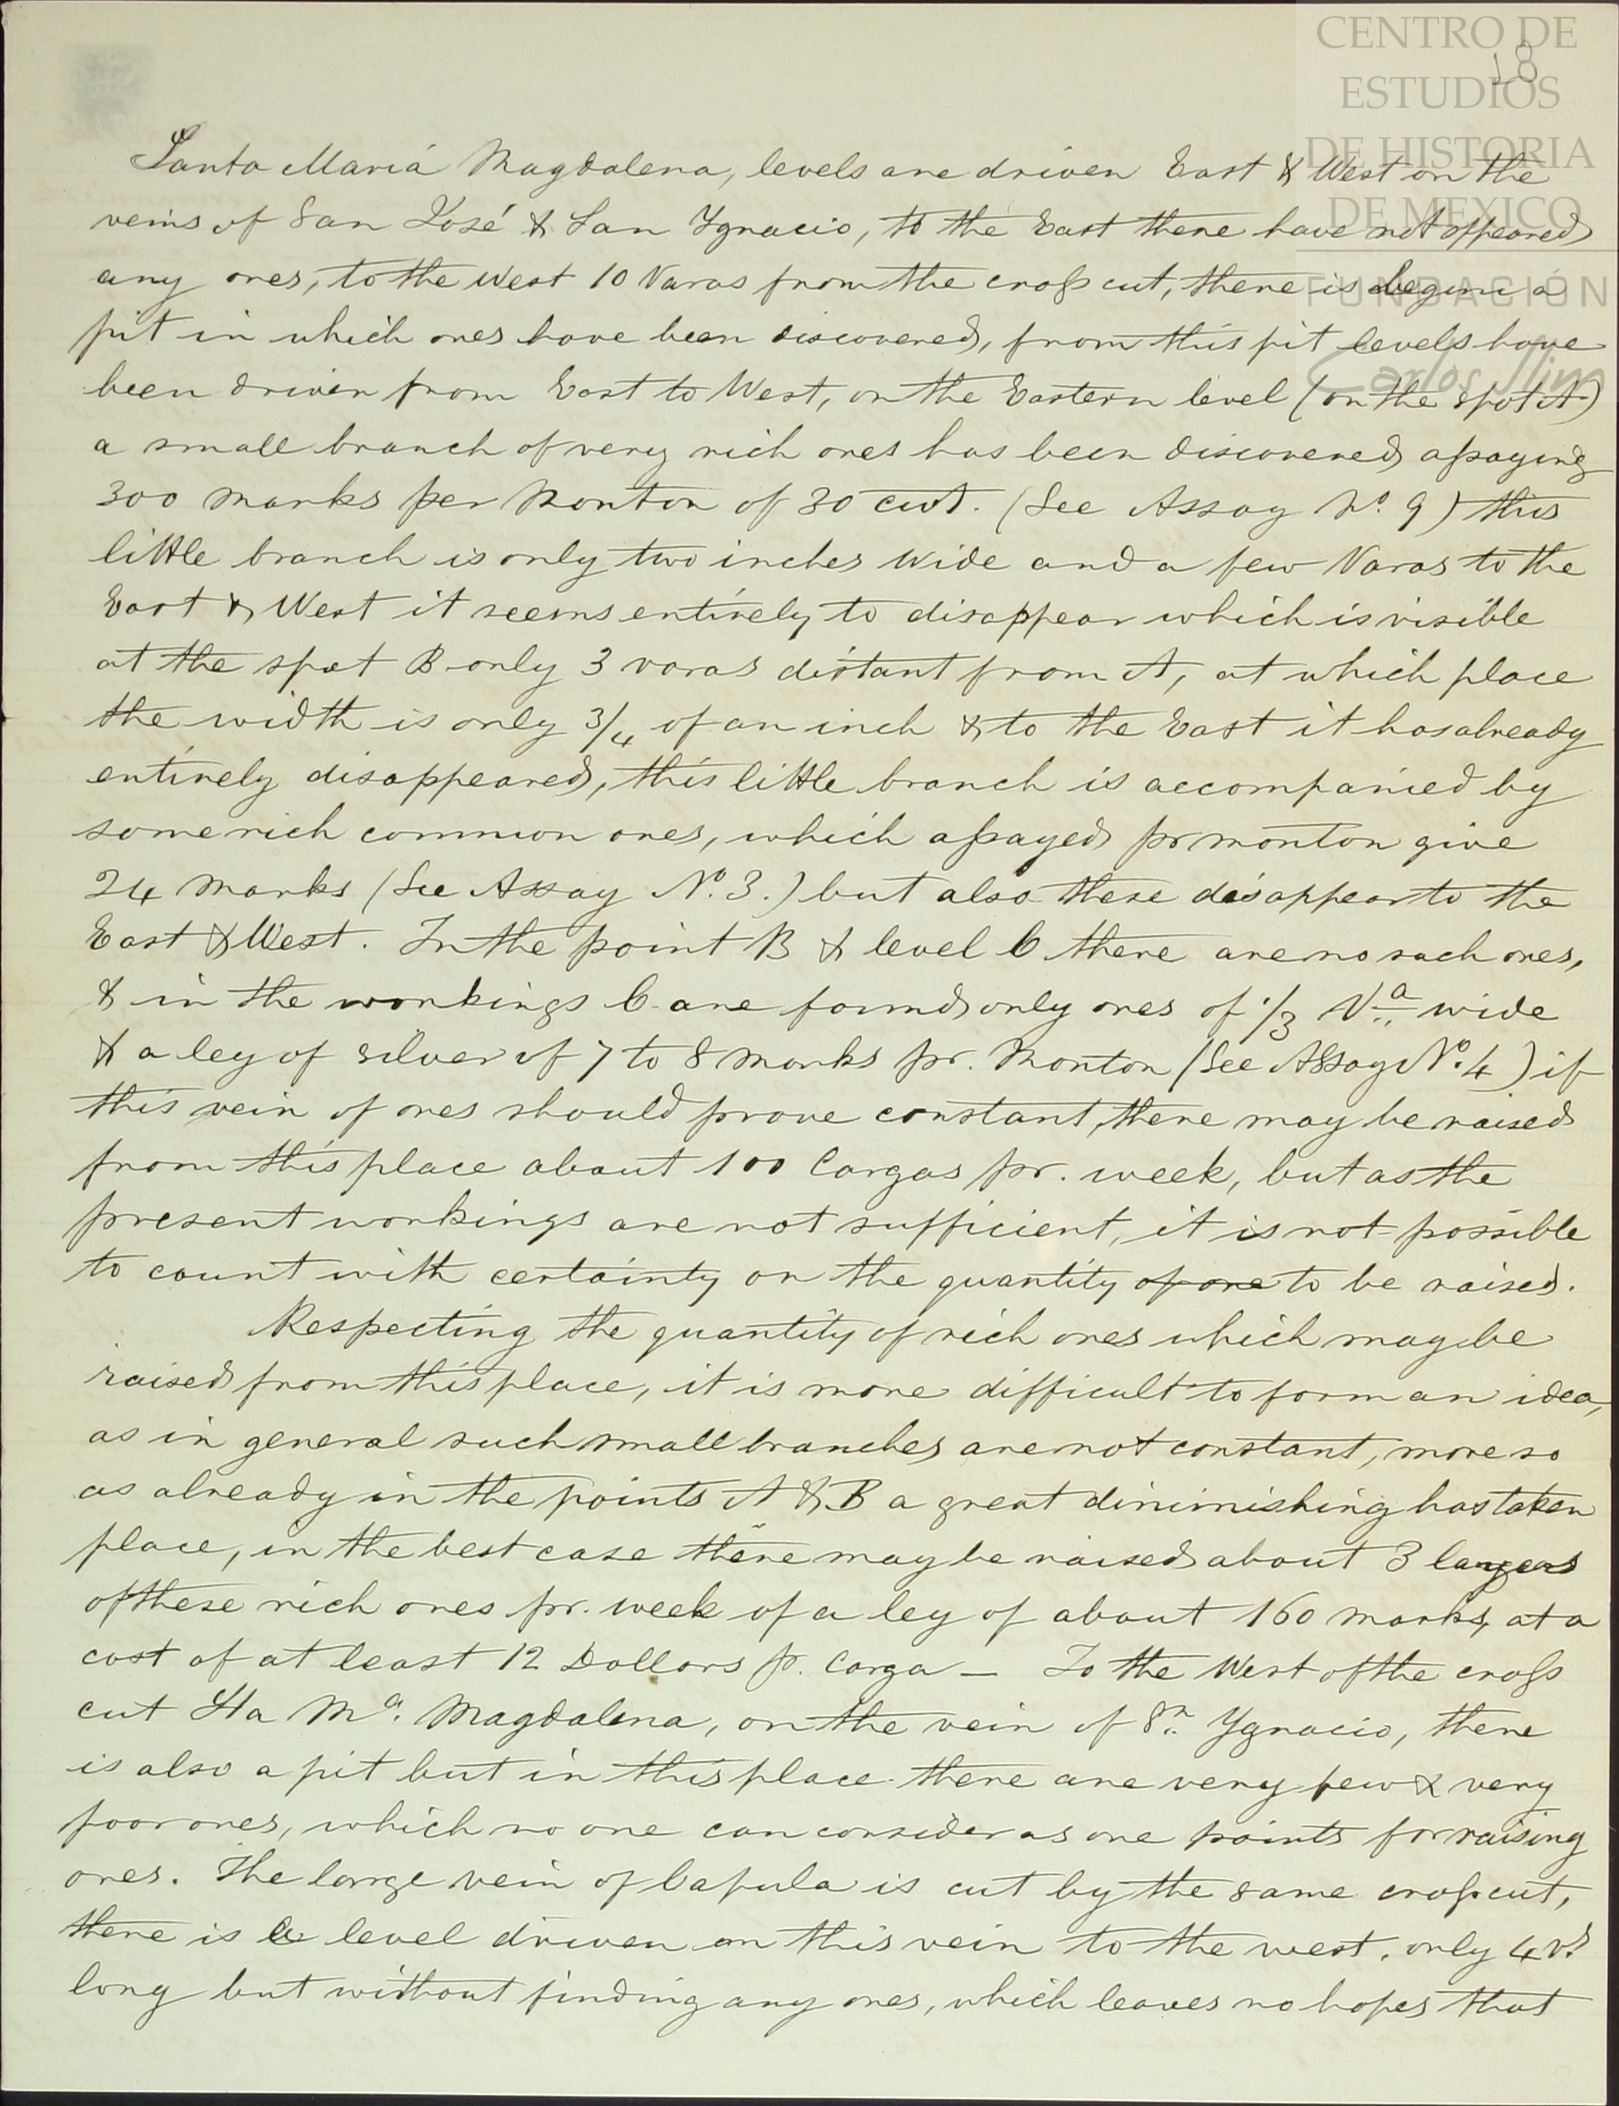 CENTRO DE
ESTUDIOS
DE HISTORIA
DE MEXICO
FUNDACIÓN
Carlos Slim
18
Santa Mariá Magdalena, levels are driven East & West on the
veins of San José & San Ygnacio, to the East there have not appeared
any ores, to the West 10 Varas from the cross cut, there is begun a
pit in which ores have been discovered, from this pit levels have
been driven from East to West, on the Eastern level (on the spot A)
a small branch of very rich ores has been discovered assaying
300 Marks per Monton of 30 cwt. (See Assay No. 9) this
little branch is only two inches wide and a few Varas to the
East & West it seems entirely to disappear which is visible
at the spot B only 3 varas distant from A, at which place
the width is only 3/4 of an inch & to the East it has already
entirely disappeared, this little branch is accompanied by
some rich common ores, which assayed pr monton give
24 Marks (See Assay No. 3.) but also these disappear to the
East & West. In the point B & level C there are no such ores,
& in the workings C are found only ores of 1/3 Va. wide
& a ley of silver of 7 to 8 Marks pr. Monton (See Assay No. 4) if
this vein of ores should prove constant, there may be raised
from this place about 100 Cargas pr. week, but as the
present workings are not sufficient, it is not possible
to count with certainty on the quantity of ore to be raised.
Respecting the quantity of rich ores which may be
raised from this place, it is more difficult to form an idea,
as in general such small branches are not constant, more so
as already in the points A & B a great diminishing has taken
place, in the best case there may be raised about 3
of these rich ores pr. week of a ley of about 160 marks, at a
cost of at least 12 Dollars p. Carga — To the West of the cross
cut Sta Ma. Magdalena, on the vein of Sn. Ygnacio, there
is also a pit but in this place there are very few & very
poor ores, which no one can consider as one points for raising
ores. The large vein of Capula is cut by the same cross cut,
there is a level driven on this vein to the west, only 4 vs
long but without finding any ores, which leaves no hopes that